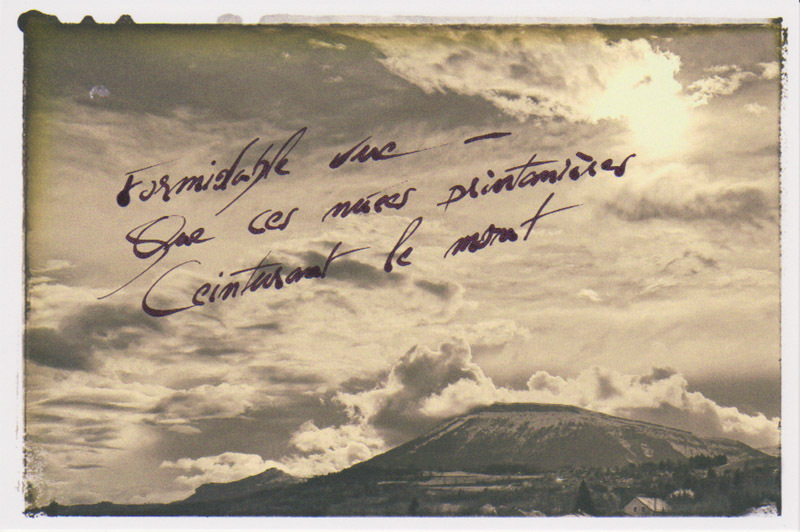 Formidable vue –
Que ces nuées printanières
Ceinturant le mont